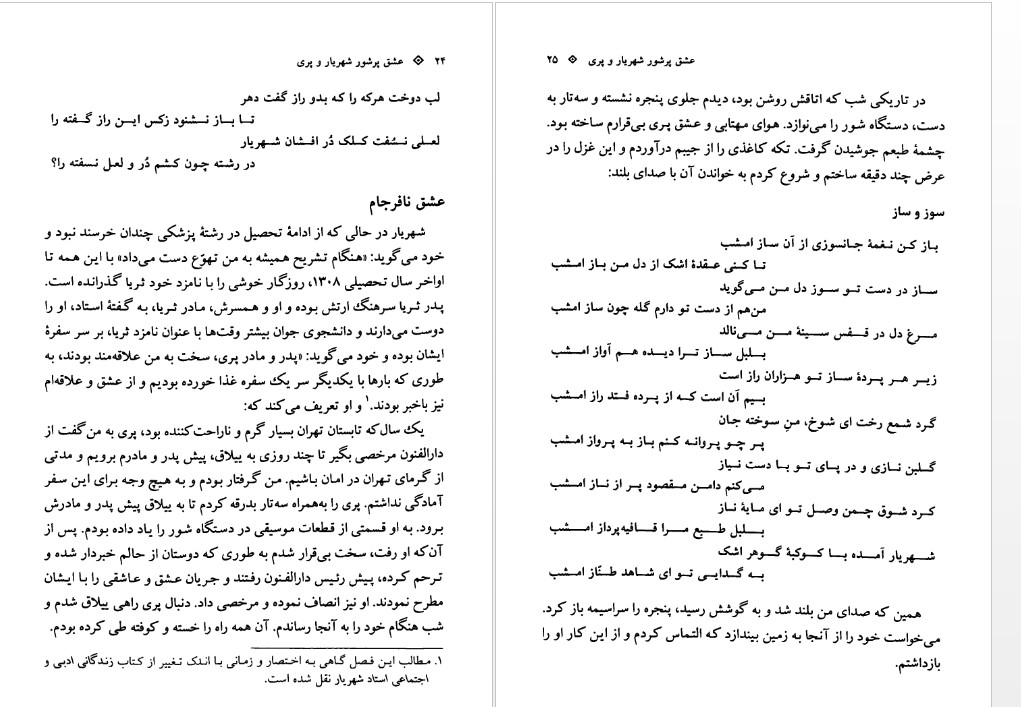 ۲۴ عشق پرشور شهریار و پری
لب دوخت هرکه را که بدو راز گفت دهر
تا باز نشنود زکس این راز گفته را
لعلی نسُفت کلک دُر افشان شهریار
در رشته چون کشم دُر و لعل نسفته را؟
عشق نافرجام
شهریار در حالی که از ادامهٔ تحصیل در رشتهٔ پزشکی چندان خرسند نبود و
خود می‌گوید: «هنگام تشریح همیشه به من تهوّع دست می‌داد» با این همه تا
اواخر سال تحصیلی ۱۳۰۸، روزگار خوشی را با نامزد خود ثریا گذرانده است.
پدر ثریا سرهنگ ارتش بوده و او و همسرش، مادر ثریا، به گفتهٔ استاد، او را
دوست می‌دارند و دانشجوی جوان بیشتر وقت‌ها با عنوان نامزد ثریا، بر سر سفرهٔ
ایشان بوده و خود می‌گوید: «پدر و مادر پری، سخت به من علاقه‌مند بودند، به
طوری که بارها با یکدیگر سر یک سفره غذا خورده بودیم و از عشق و علاقه‌ام
نیز باخبر بودند.۱ و او تعریف می‌کند که:
یک سال که تابستان تهران بسیار گرم و ناراحت‌کننده بود، پری به من گفت از
دارالفنون مرخصی بگیر تا چند روزی به ییلاق، پیش پدر و مادرم برویم و مدتی
از گرمای تهران در امان باشیم. من گرفتار بودم و به هیچ وجه برای این سفر
آمادگی نداشتم. پری را به‌همراه سه‌تار بدرقه کردم تا به ییلاق پیش پدر و مادرش
برود. به او قسمتی از قطعات موسیقی در دستگاه شور را یاد داده بودم. پس از
آن‌که او رفت، سخت بی‌قرار شدم به طوری که دوستان از حالم خبردار شده و
ترحم کرده، پیش رئیس دارالفنون رفتند و جریان عشق و عاشقی را با ایشان
مطرح نمودند. او نیز انصاف نموده و مرخصی داد. دنبال پری راهی ییلاق شدم و
شب هنگام خود را به آنجا رساندم. آن همه راه را خسته و کوفته طی کرده بودم.
۱. مطالب این فصل گاهی به اختصار و زمانی با اندک تغییر از کتاب زندگانی ادبی و
اجتماعی استاد شهریار نقل شده است.
عشق پرشور شهریار و پری ۲۵
در تاریکی شب که اتاقش روشن بود، دیدم جلوی پنجره نشسته و سه‌تار به
دست، دستگاه شور را می‌نوازد. هوای مهتابی و عشق پری بی‌قرارم ساخته بود.
چشمهٔ طبعم جوشیدن گرفت. تکه کاغذی را از جیبم درآوردم و این غزل را در
عرض چند دقیقه ساختم و شروع کردم به خواندن آن با صدای بلند:
سوز و ساز
باز کن نغمهٔ جانسوزی از آن ساز امشب
تا کنی عقدهٔ اشک از دل من باز امشب
ساز در دست تو سوز دل من می‌گوید
من‌هم از دست تو دارم گله چون ساز امشب
مرغ دل در قفس سینهٔ من می‌نالد
بلبل ساز ترا دیده هم آواز امشب
زیر هر پردهٔ ساز تو هزاران راز است
بیم آن است که از پرده فتد راز امشب
گرد شمع رخت ای شوخ، منِ سوخته جان
پر چو پروانه کنم باز به پرواز امشب
گلبن نازی و در پای تو با دست نیاز
می‌کنم دامن مقصود پر از ناز امشب
کرد شوق چمن وصل تو ای مایهٔ ناز
بلبل طبع مرا قافیه‌پرداز امشب
شهریار آمده با کوکبهٔ گوهر اشک
به گدایی تو ای شاهد طنّاز امشب
همین که صدای من بلند شد و به گوشش رسید، پنجره را سراسیمه باز کرد.
می‌خواست خود را از آنجا به زمین بیندازد که التماس کردم و از این کار او را
بازداشتم.